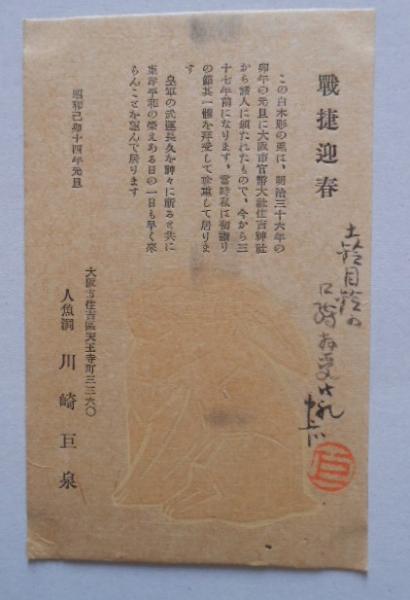 戰捷迎春
この白木彫の兎は、明治三十六年の
卯年の元旦に大阪市官幣大社住吉神社
から諸人に頒たれたもので、今から三
十七年前になります。當時私は初詣り
の節其一體を拜受して珍藏して居りま
す
皇軍の武運長久を神々に祈ると共に
東洋平和の榮えある日の一日も早く來
らんことを望んで居ります
昭和己卯十四年元旦
大阪市住吉區天王寺町三三六〇
人魚洞 川崎巨泉
巨